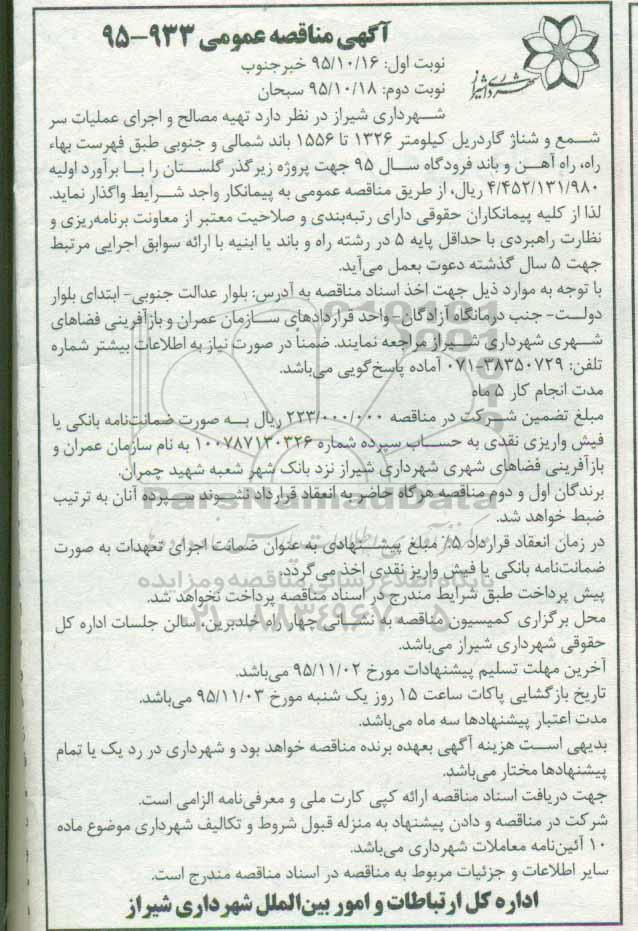 آگهی مناقصه عمومی ۹۳۳-۹۵
نوبت اول: ۹۵/۱۰/۱۶ خبرجنوب
نوبت دوم: ۹۵/۱۰/۱۸ سبحان
شهرداری شیراز
شهرداری شیراز در نظر دارد تهیه مصالح و اجرای عملیات سر
شمع و شناژ گاردریل کیلومتر ۱۳۲۶ تا ۱۵۵۶ باند شمالی و جنوبی طبق فهرست بهاء
راه، راه آهن و باند فرودگاه سال ۹۵ جهت پروژه زیرگذر گلستان را با برآورد اولیه
۴/۴۵۲/۱۳۱/۹۸۰ ریال، از طریق مناقصه عمومی به پیمانکار واجد شرایط واگذار نماید.
لذا از کلیه پیمانکاران حقوقی دارای رتبه‌بندی و صلاحیت معتبر از معاونت برنامه‌ریزی و
نظارت راهبردی با حداقل پایه ۵ در رشته راه و باند یا ابنیه با ارائه سوابق اجرایی مرتبط
جهت ۵ سال گذشته دعوت بعمل می‌آید.
با توجه به موارد ذیل جهت اخذ اسناد مناقصه به آدرس: بلوار عدالت جنوبی- ابتدای بلوار
دولت- جنب درمانگاه آزادگان- واحد قراردادهای سازمان عمران و بازآفرینی فضاهای
شهری شهرداری شیراز مراجعه نمایند. ضمناً در صورت نیاز به اطلاعات بیشتر شماره
تلفن: ۳۸۳۵۰۷۲۹-۰۷۱ آماده پاسخ‌گویی می‌باشد.
مدت انجام کار ۵ ماه
مبلغ تضمین شرکت در مناقصه ۲۲۳/۰۰۰/۰۰۰ ریال به صورت ضمانت‌نامه بانکی یا
فیش واریزی نقدی به حساب سپرده شماره ۱۰۰۷۸۷۱۳۰۳۲۶ به نام سازمان عمران و
بازآفرینی فضاهای شهری شهرداری شیراز نزد بانک شهر شعبه شهید چمران.
برندگان اول و دوم مناقصه هرگاه حاضر به انعقاد قرارداد نشوند سپرده آنان به ترتیب
ضبط خواهد شد.
در زمان انعقاد قرارداد ۵٪ مبلغ پیشنهادی به عنوان ضمانت اجرای تعهدات به صورت
ضمانت‌نامه بانکی یا فیش واریز نقدی اخذ می‌گردد.
پیش پرداخت طبق شرایط مندرج در اسناد مناقصه پرداخت نخواهد شد.
محل برگزاری کمیسیون مناقصه به نشانی چهار راه خلدبرین، سالن جلسات اداره کل
حقوقی شهرداری شیراز می‌باشد.
آخرین مهلت تسلیم پیشنهادات مورخ ۹۵/۱۱/۰۲ می‌باشد.
تاریخ بازگشایی پاکات ساعت ۱۵ روز یک شنبه مورخ ۹۵/۱۱/۰۳ می‌باشد.
مدت اعتبار پیشنهادها سه ماه می‌باشد.
بدیهی است هزینه آگهی بعهده برنده مناقصه خواهد بود و شهرداری در رد یک یا تمام
پیشنهادها مختار می‌باشد.
جهت دریافت اسناد مناقصه ارائه کپی کارت ملی و معرفی‌نامه الزامی است.
شرکت در مناقصه و دادن پیشنهاد به منزله قبول شروط و تکالیف شهرداری موضوع ماده
۱۰ آئین‌نامه معاملات شهرداری می‌باشد.
سایر اطلاعات و جزئیات مربوط به مناقصه در اسناد مناقصه مندرج است.
اداره کل ارتباطات و امور بین‌الملل شهرداری شیراز
ParsNamadData
پایگاه اطلاع رسانی مناقصه و مزایده
۰۲۱-۸۸۳۴۹۶۷۰-۵